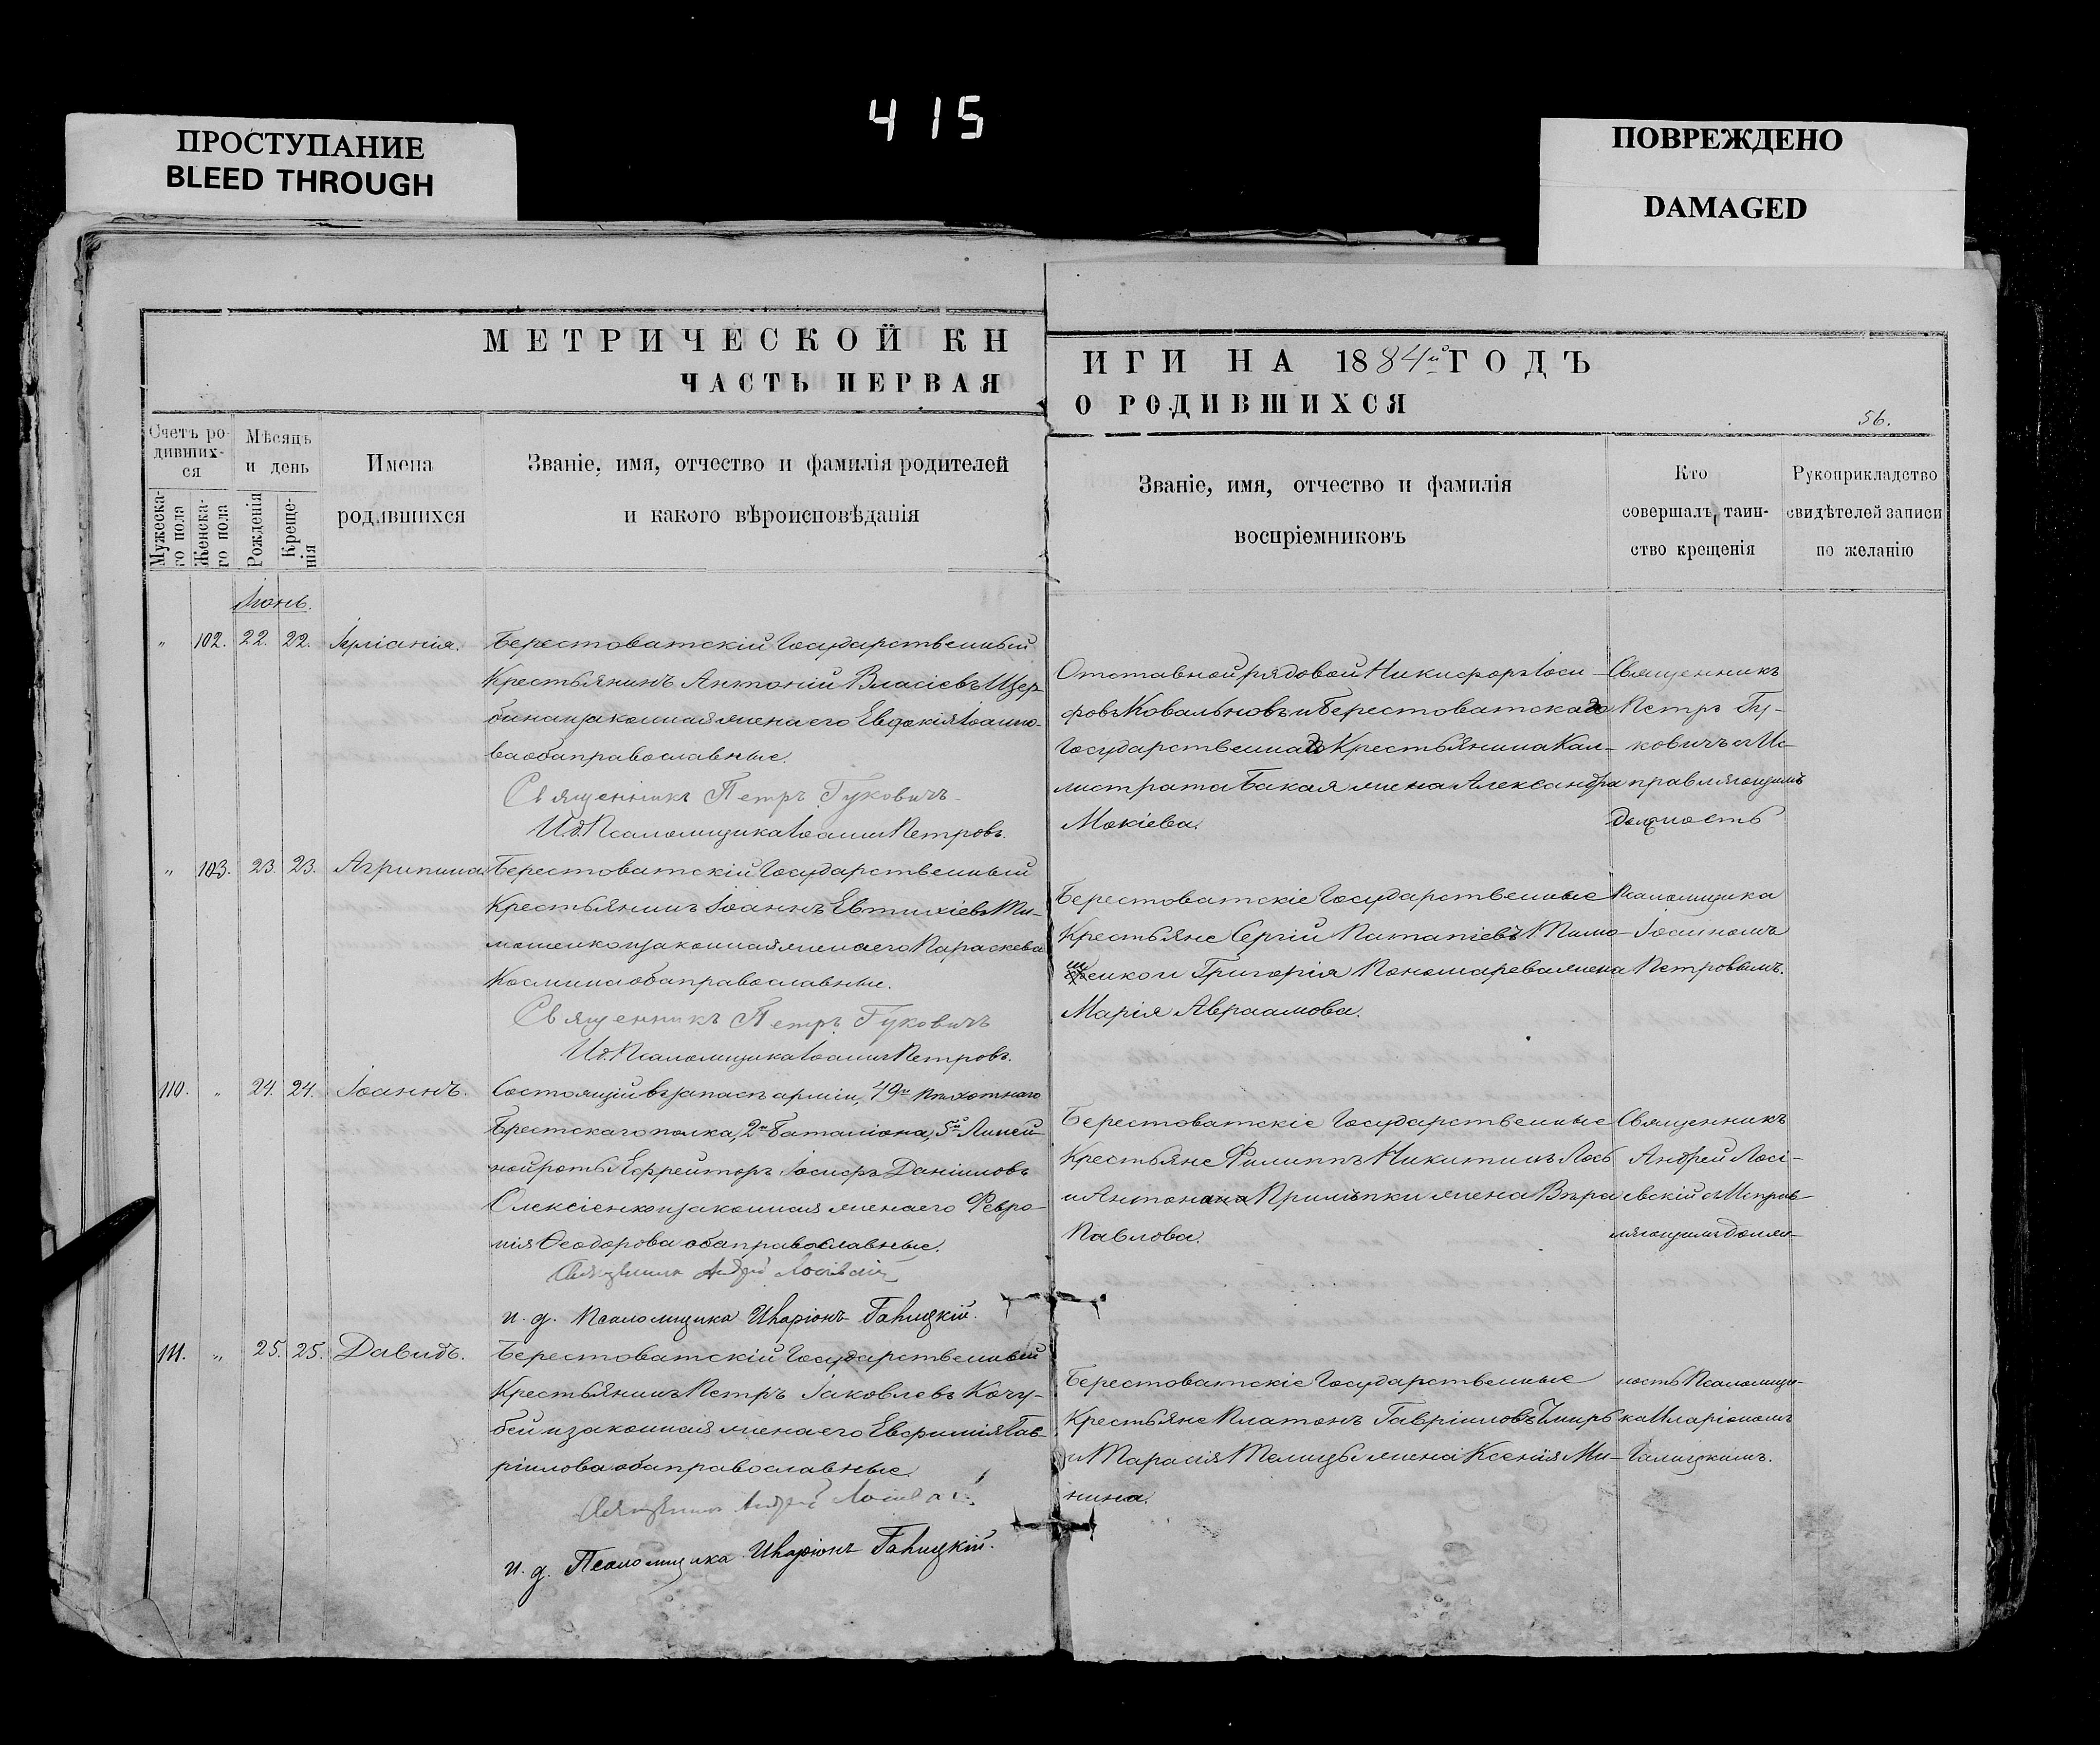 415
ПРОСТУПАНИЕ
BLEED THROUGH
ПОВРЕЖДЕНО
DAMAGED
МЕТРИЧЕСКОЙ КН
ЧАСТЬ ПЕРВАЯ
ИГИ НА 1884й ГОДЪ
О РОДИВШИХСЯ
56.
Счетъ ро-
дивших-
ся
Мѣсяцъ
и день
Имена
родившихся
Званіе, имя, отчество и фамилія родителей
и какого вѣроисповѣданія
Мужеска-
го пола
Женска-
го пола
Рожденія
Креще-
нія
Званіе, имя, отчество и фамилія
воспріемниковъ
Кто
совершалъ таин-
ство крещенія
Рукоприкладство
свидѣтелей записи
по желанію
Іюнь.
" 102. 22. 22. Іуліанія. Берестоватскій Государственный
Крестьянинъ Антоній Власіевъ Щер-
бина и законная жена его Евдокія Іоанно-
ва оба православные.
Священникъ Петръ Гуковичъ
И. д. Псаломщика Іоаннъ Петровъ.
Отставной рядовой Никифоръ Іоси-
фовъ Ковальновъ и Берестоватскаго
Государственнаго Крестьянина Кал-
листрата Бакая жена Александра
Мокіева.
Священникъ
Петръ Гу-
ковичъ съ Ис-
правляющимъ
должность
" 103. 23. 23. Агрипина Берестоватскій Государственный
Крестьянинъ Іоаннъ Евтихіевъ Ти-
мошенко и законная жена его Параскева
Космина оба православные.
Священникъ Петръ Гуковичъ
И. д. Псаломщика Іоаннъ Петровъ.
Берестоватскіе Государственные
Крестьяне Сергій Патапіевъ Тимо-
шенко и Григорія Пономарева жена
Марія Авраамова.
Псаломщика
Іоанномъ
Петровымъ.
110. " 24. 24. Іоаннъ. Состоящій въ запасѣ арміи, 49го Пѣхотнаго
Брестскаго полка, 2го Баталіона, 5й Линей-
ной роты Ефрейторъ Іосифъ Даніиловъ
Олексіенко и законная жена его Февро-
нія Ѳеодорова оба православные.
Священникъ Андрей Лосіевскій
и. д. Псаломщика Иларіонъ Галицкій.
Берестоватскіе Государственные
Крестьяне Филиппъ Никитинъ Лось
и Антона Прилѣпки жена Вѣра
Павлова.
Священникъ
Андрей Лосі-
евскій съ Исправ-
ляющимъ долж-
111. " 25. 25. Давидъ. Берестоватскій Государственный
Крестьянинъ Петръ Іаковлевъ Кочу-
бей и законная жена его Евфимія Гав-
ріилова оба православные.
Священникъ Андрей Лосіевскій
и. д. Псаломщика Иларіонъ Галицкій.
Берестоватскіе Государственные
Крестьяне Платонъ Гавріиловъ Чмиръ
и Тарасія Телицы жена Ксенія Ми-
нина.
ность Псаломщи-
ка Иларіономъ
Галицкимъ.